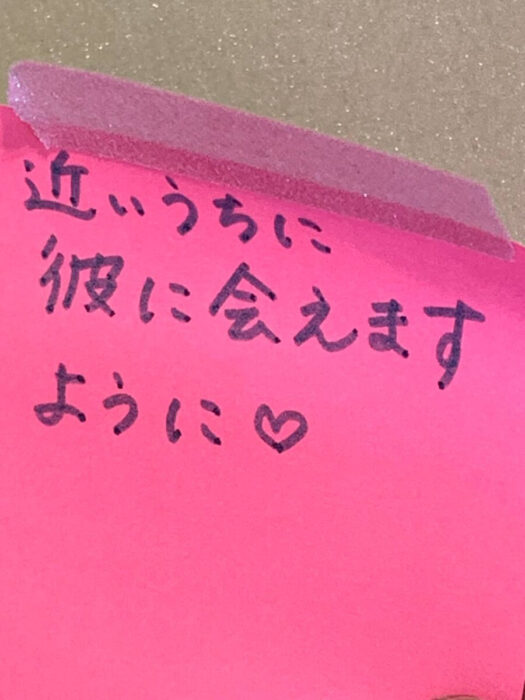 近いうちに
彼に会えます
ように♡